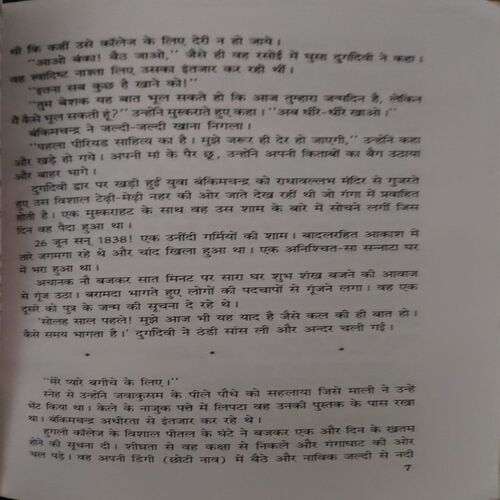 थी कि कहीं उसे कॉलेज के लिए देरी न हो जाये।
"आओ बंका! बैठ जाओ," जैसे ही वह रसोई में घुसा दुर्गादेवी ने कहा।
वह स्वादिष्ट नाश्ता लिए उसका इंतजार कर रही थीं।
"इतना सब कुछ है खाने को!"
"तुम बेशक यह बात भूल सकते हो कि आज तुम्हारा जन्मदिन है, लेकिन
मैं कैसे भूल सकती हूं?" उन्होंने मुस्कराते हुए कहा। "अब धीरे-धीरे खाओ।"
बंकिमचन्द्र ने जल्दी-जल्दी खाना निगला।
"पहला पीरियड साहित्य का है। मुझे जरूर ही देर हो जाएगी," उन्होंने कहा
और खड़े हो गये। अपनी मां के पैर छू, उन्होंने अपनी किताबों का बैग उठाया
और बाहर भागे।
दुर्गादेवी द्वार पर खड़ी हुई युवा बंकिमचन्द्र को राधावल्लभ मंदिर से गुजरते
हुए उस विशाल टेढ़ी-मेढ़ी नहर की ओर जाते देख रहीं थी जो गंगा में प्रवाहित
होती है। एक मुस्कराहट के साथ वह उस शाम के बारे में सोचने लगीं जिस
दिन वह पैदा हुआ था।
26 जून सन् 1838! एक उनींदी गर्मियों की शाम। बादलरहित आकाश में
तारे जगमगा रहे थे और चांद खिला हुआ था। एक अनिश्चित-सा सन्नाटा घर
में भरा हुआ था।
अचानक नौ बजकर सात मिनट पर सारा घर शुभ शंख बजने की आवाज
से गूंज उठा। बरामदा भागते हुए लोगों की पदचापों से गूंजने लगा। वह एक
दूसरे को पुत्र के जन्म की सूचना दे रहे थे।
'सोलह साल पहले! मुझे आज भी यह याद है जैसे कल की ही बात हो।
कैसे समय भागता है।' दुर्गादेवी ने ठंडी सांस ली और अन्दर चली गई।
* * *
"मेरे प्यारे बगीचे के लिए।"
स्नेह से उन्होंने जवाकुसम के पीले पौधे को सहलाया जिसे माली ने उन्हें
भेंट किया था। केले के नाजुक पत्ते में लिपटा वह उनकी पुस्तक के पास रखा
था। बंकिमचन्द्र अधीरता से इंतजार कर रहे थे।
हुगली कॉलेज के विशाल पीतल के घंटे ने बजकर एक और दिन के खतम
होने की सूचना दी। शीघ्रता से वह कक्षा से निकले और गंगाघाट की ओर
चल पड़े। वह अपनी डिंगी (छोटी नाव) में बैठे और नाविक जल्दी से नदी
7